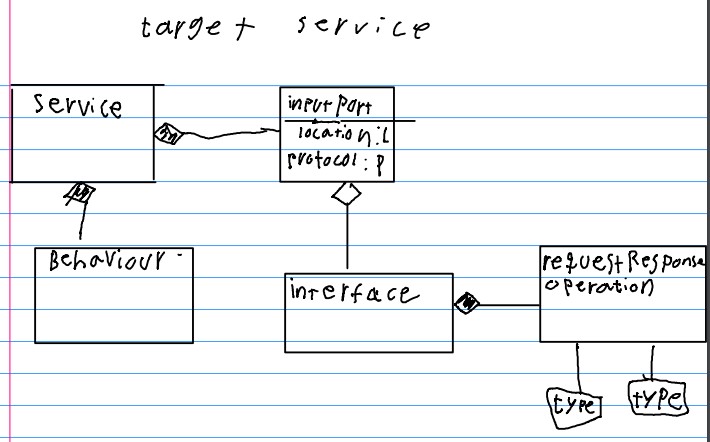 target service
service
inputport
location: L
protocol: p
Behaviour
interface
requestResponse
operation
type
type